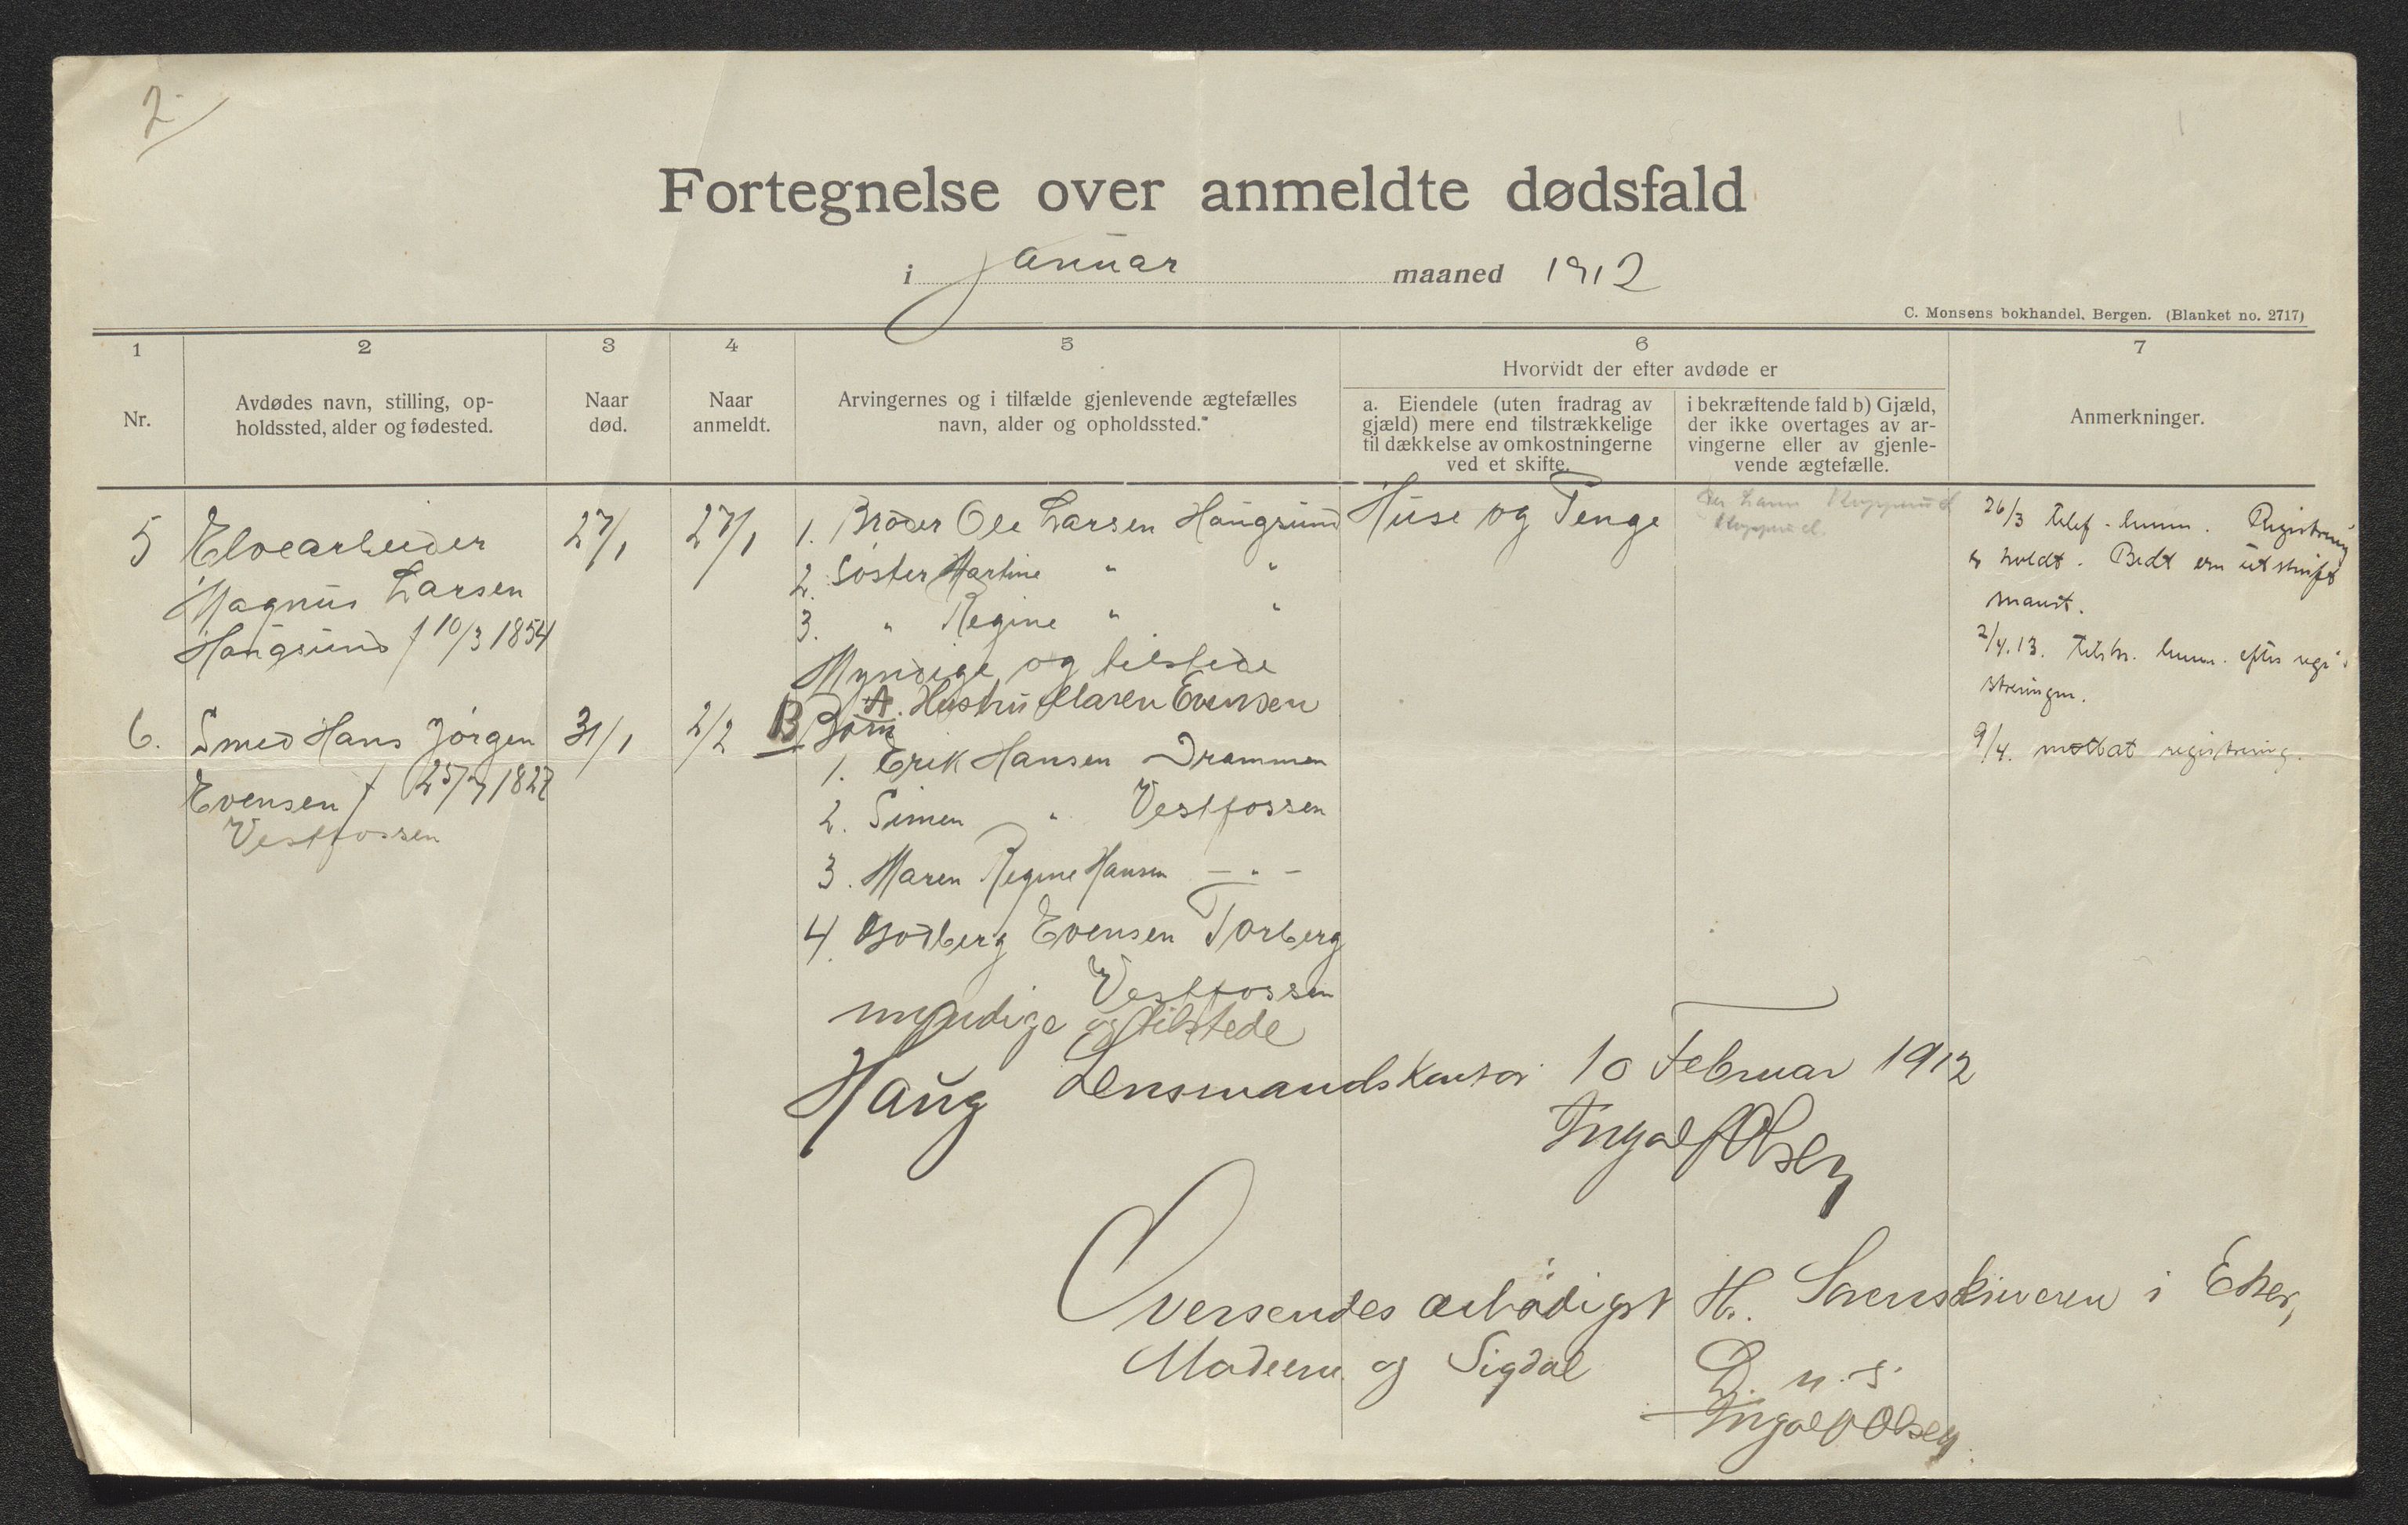 2
Fortegnelse over anmeldte dødsfald
i Januar maaned 1912
C. Monsens bokhandel, Bergen. (Blanket no. 2717)
1
Nr.
2
Avdødes navn, stilling, op-
holdssted, alder og fødested.
3
Naar
død.
4
Naar
anmeldt.
5
Arvingernes og i tilfælde gjenlevende ægtefælles
navn, alder og opholdssted.
6
Hvorvidt der efter avdøde er
a. Eiendele (uten fradrag av
gjæld) mere end tilstrækkelige
til dækkelse av omkostningerne
ved et skifte.
i bekræftende fald b) Gjæld,
der ikke overtages av ar-
vingerne eller av gjenle-
vende ægtefælle.
7
Anmerkninger.
5
Elvearbeider
Magnus Larsen
Haugsund f 10/3 1854
27/1
27/1
1. Broder Ole Larsen Haugsund
2. Søster Martine " "
3. " Regine " "
Myndige og tilstede
Huse og Penge
26/3 telef. lensm. Registrering
er holdt. Bedt om utskrift
mandt.
2/4.13. lensm. efter regi-
streringen.
9/4. mottat registrering.
6.
Smed Hans Jørgen
Evensen f 25/7 1827
Vestfossen
31/1
2/2
A. Hustru Maren Evensen
B Børn
1. Erik Hansen Drammen
2. Simen " Vestfossen
3. Maren Regine Hansen — " —
4. Godberg Evensen Torberg
Vestfossen
myndige og tilstede
Haug Lensmandskontor 10 Februar 1912
Ingolf Olsen
Oversendes ærbødigst Hr. Sorenskriveren i Eker,
Modum og Sigdal
D. u. s.
Ingolf Olsen